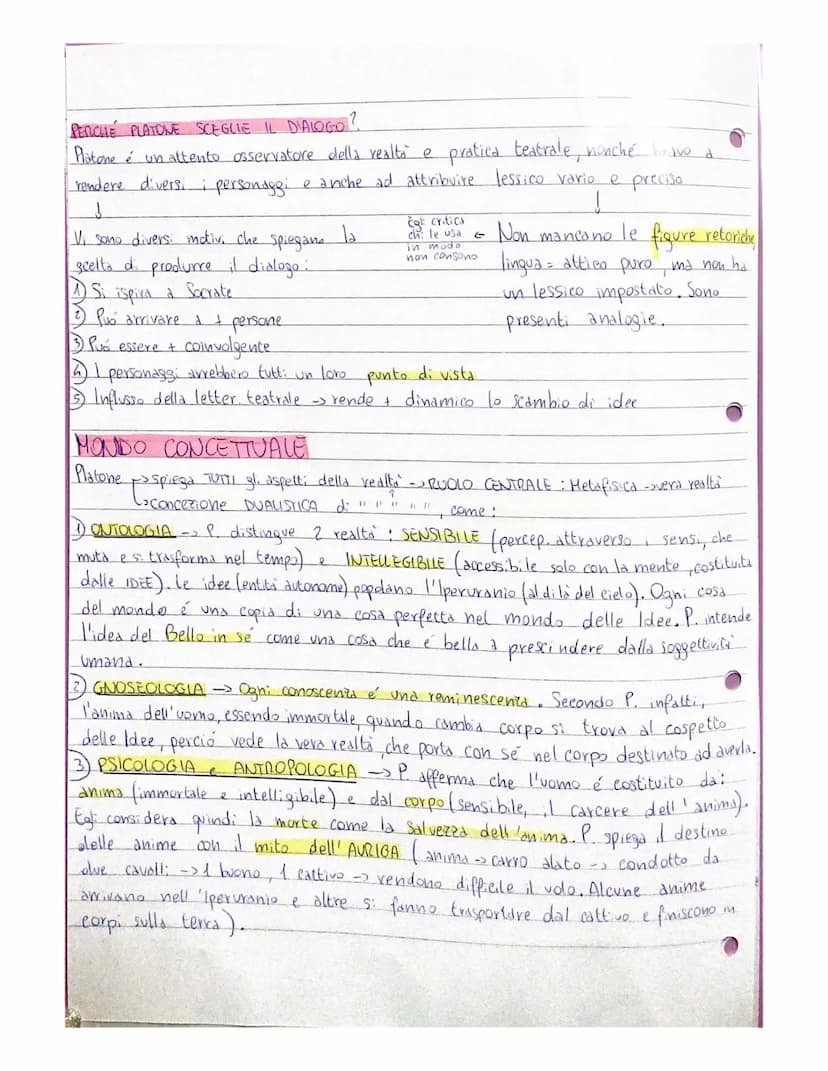 PERCHÉ PLATONE SCEGLIE IL DIALOGO?
Platone é un attento osservatore della realtà e pratica teatrale, nonché bravo a
rendere diversi i personaggi e anche ad attribuire lessico vario e preciso
↓ ↓
Vi sono diversi motivi che spiegano la
scelta di produrre il dialogo:
1) Si ispira a Socrate
2) Puó arrivare a + persone
3) Puó essere + coinvolgente
4) I personaggi avrebbero tutti un loro punto di vista
5) Influsso della letter. teatrale -> rende + dinamico lo scambio di idee
Egli critica
chi le usa
in modo
non consono
← Non mancano le figure retoriche,
lingua = attico puro, ma non ha
un lessico impostato. Sono
presenti analogie.
MONDO CONCETTUALE
Platone -> spiega TUTTI gli aspetti della realtà -> RUOLO CENTRALE : Metafisica -> vera realtà
-> concezione DUALISTICA di " " " " ", come :
1) ONTOLOGIA -> P. distingue 2 realtà : SENSIBILE (percep. attraverso i sensi, che
muta e si trasforma nel tempo) e INTELLEGIBILE (accessibile solo con la mente, costituita
dalle IDEE). Le idee (entità autonome) popolano l'Iperuranio (al di là del cielo). Ogni cosa
del mondo é una copia di una cosa perfetta nel mondo delle Idee. P. intende
l'idea del Bello in sé come una cosa che é bella a prescindere dalla soggettività
umana.
2) GNOSEOLOGIA -> Ogni conoscenza é una reminescenza. Secondo P. infatti,
l'anima dell'uomo, essendo immortale, quando cambia corpo si trova al cospetto
delle Idee, perció vede la vera realtà, che porta con sé nel corpo destinato ad averla.
3) PSICOLOGIA e ANTROPOLOGIA -> P. afferma che l'uomo é costituito da:
anima (immortale e intelligibile) e dal corpo (sensibile, il carcere dell'anima).
Egli considera quindi la morte come la salvezza dell'anima. P. spiega il destino
delle anime con il mito dell'AURIGA (anima -> carro alato -> condotto da
due cavalli -> 1 buono, 1 cattivo -> rendono difficile il volo. Alcune anime
arrivano nell'Iperuranio e altre si fanno trasportare dal cattivo e finiscono in
corpi sulla terra).